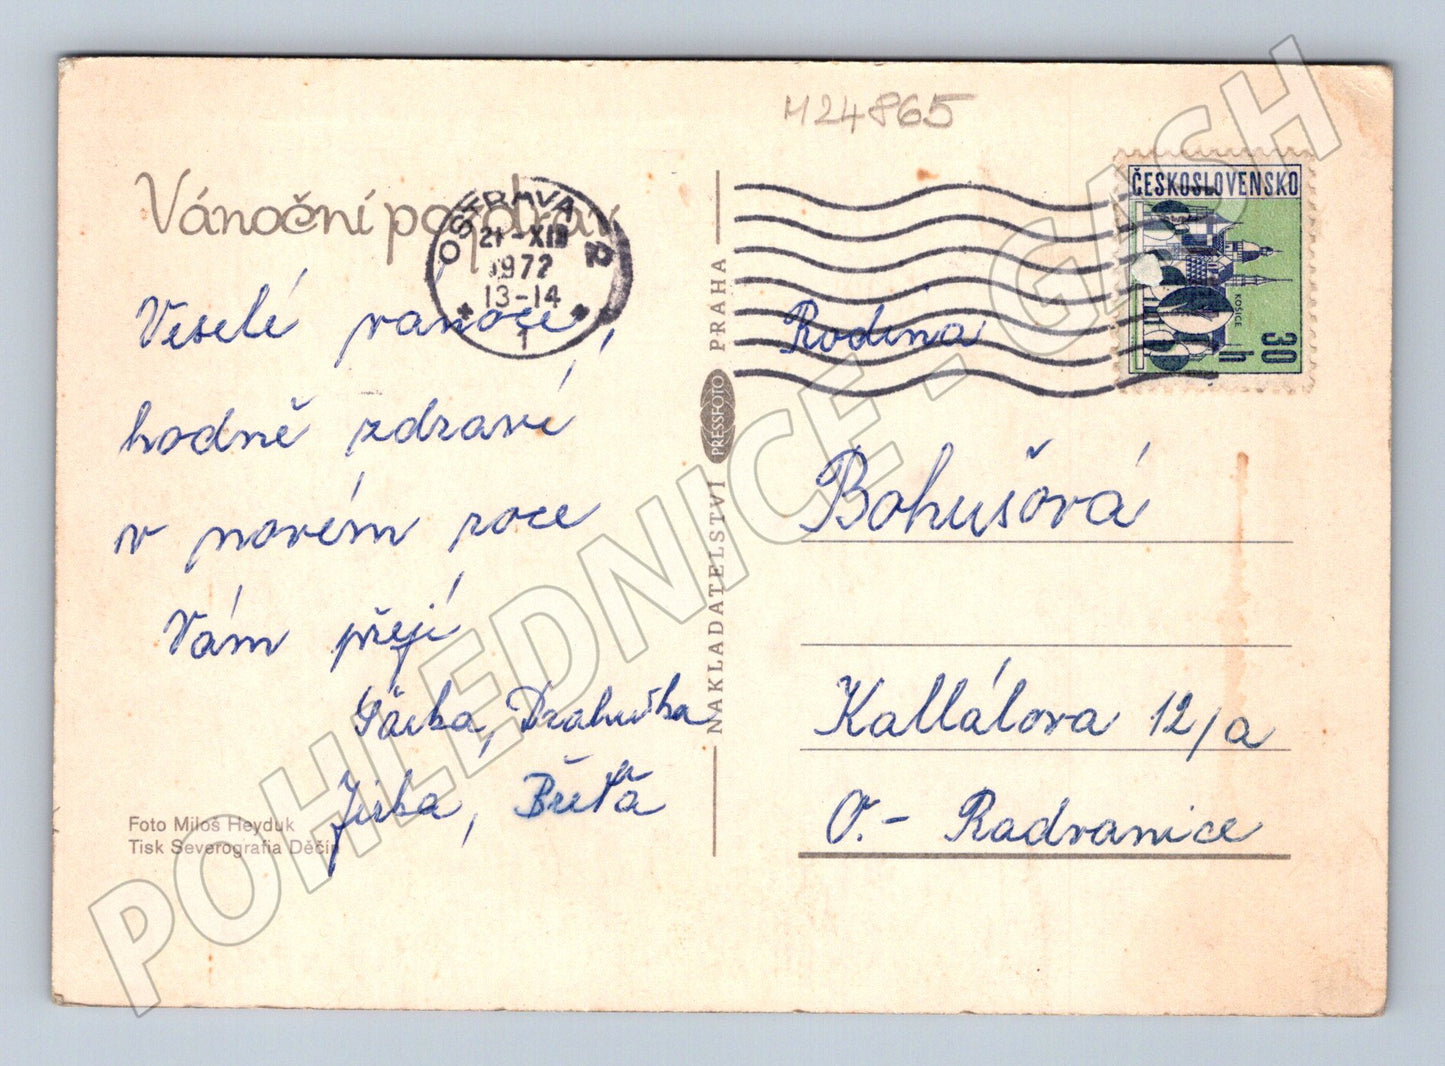 M24865
Vánoční pozdrav
OSTRAVA 2
21-XII
1972
13-14
1
ČESKOSLOVENSKO
KOŠICE
30 h
Veselé vanoce,
hodně zdraví
v novém roce
Vám přejí
Šárka, Drahuška
Jirka, Břeťa
Foto Miloš Heyduk
Tisk Severografia Děčín
NAKLADATELSTVÍ PRESSFOTO PRAHA
Rodina
Bohušová
Kallálova 12/a
O.- Radvanice
POHLEDNICE - GASH